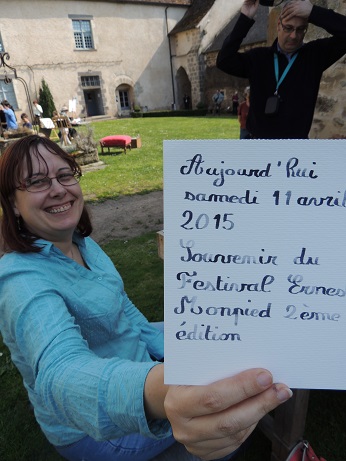 Aujourd'Hui
samedi 11 avril
2015
Souvenir du
Festival Ernes
Monpied 2ème
édition